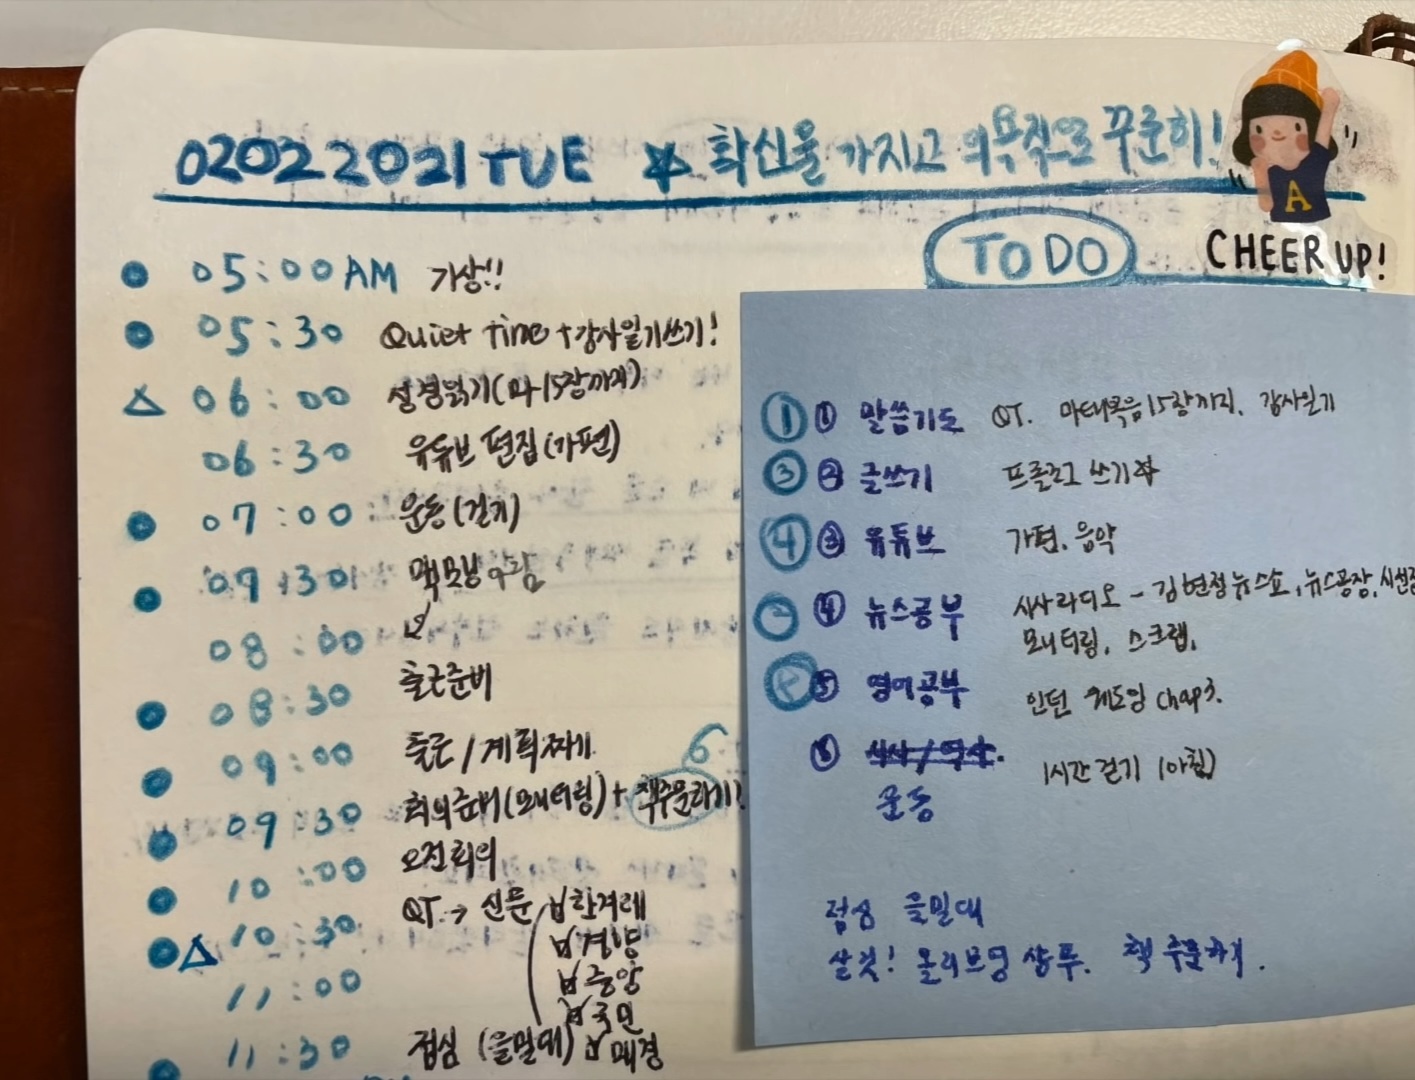 02022021 TUE ☆ 확신을 가지고 의욕적으로 꾸준히!
A
CHEER UP!
TO DO
05:00AM 기상!!
05:30 Quiet time + 감사일기쓰기!
△ 06:00 성경읽기(마15장까지)
06:30 유튜브 편집(가편)
07:00 운동(걷기)
07:30
08:00
08:30 출근준비
09:00 출근/계획짜기
6
09:30 회의준비(모니터링)+ 책주문하기!
10:00 오전회의
△ 10:30 QT. → 신문 한겨레
경향
11:00 중앙
국민
11:30 점심 (을밀대) 매경
① ① 말씀기도 QT. 마태복음15장까지. 감사일기
③ ② 글쓰기 프롤로그 쓰기☆
④ ③ 유튜브 가편. 음악
② ④ 뉴스공부 시사라디오 - 김현정뉴스쇼, 뉴스공장, 시선집
모니터링, 스크랩,
⑤ 영어공부 인턴 chap3.
⑥ 시사/역사.
운동 1시간 걷기 (아침)
점심 을밀대
살것! 올리브영 샴푸. 책 주문하기.